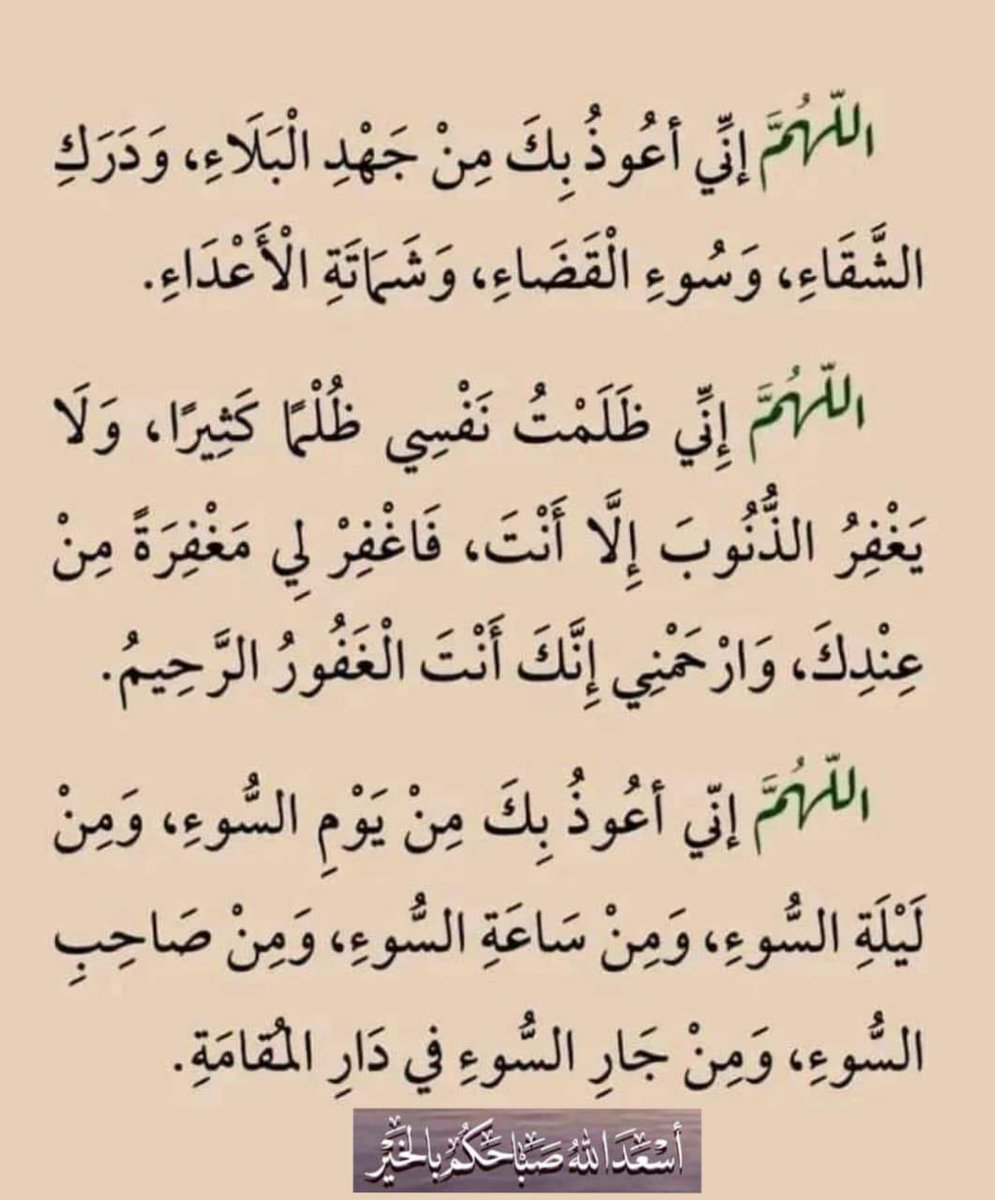 اللّهُمَّ إنِّي أعُوذُ بِكَ مِنْ جَهْدِ الْبَلَاءِ، وَدَرَكِ
الشَّقَاءِ، وَسُوءِ الْقَضَاءِ، وَشَمَاتَةِ الْأَعْدَاءِ.
اللّهُمَّ إِنِّي ظَلَمْتُ نَفْسِي ظُلْمًا كَثِيرًا، وَلَا
يَغْفِرُ الذُّنُوبَ إِلَّا أَنْتَ، فَاغْفِرْ لِي مَغْفِرَةً مِنْ
عِنْدِكَ، وَارْحَمْنِي إِنَّكَ أَنْتَ الْغَفُورُ الرَّحِيمُ.
اللّهُمَّ إنّي أعُوذُ بِكَ مِنْ يَوْمِ السُّوءِ، وَمِنْ
لَيْلَةِ السُّوءِ، وَمِنْ سَاعَةِ السُّوءِ، وَمِنْ صَاحِبِ
السُّوءِ، وَمِنْ جَارِ السُّوءِ في دَارِ المُقامَةِ.
أسْعَدَ اللهُ صَبَاحَكُمْ بِالخَيْر